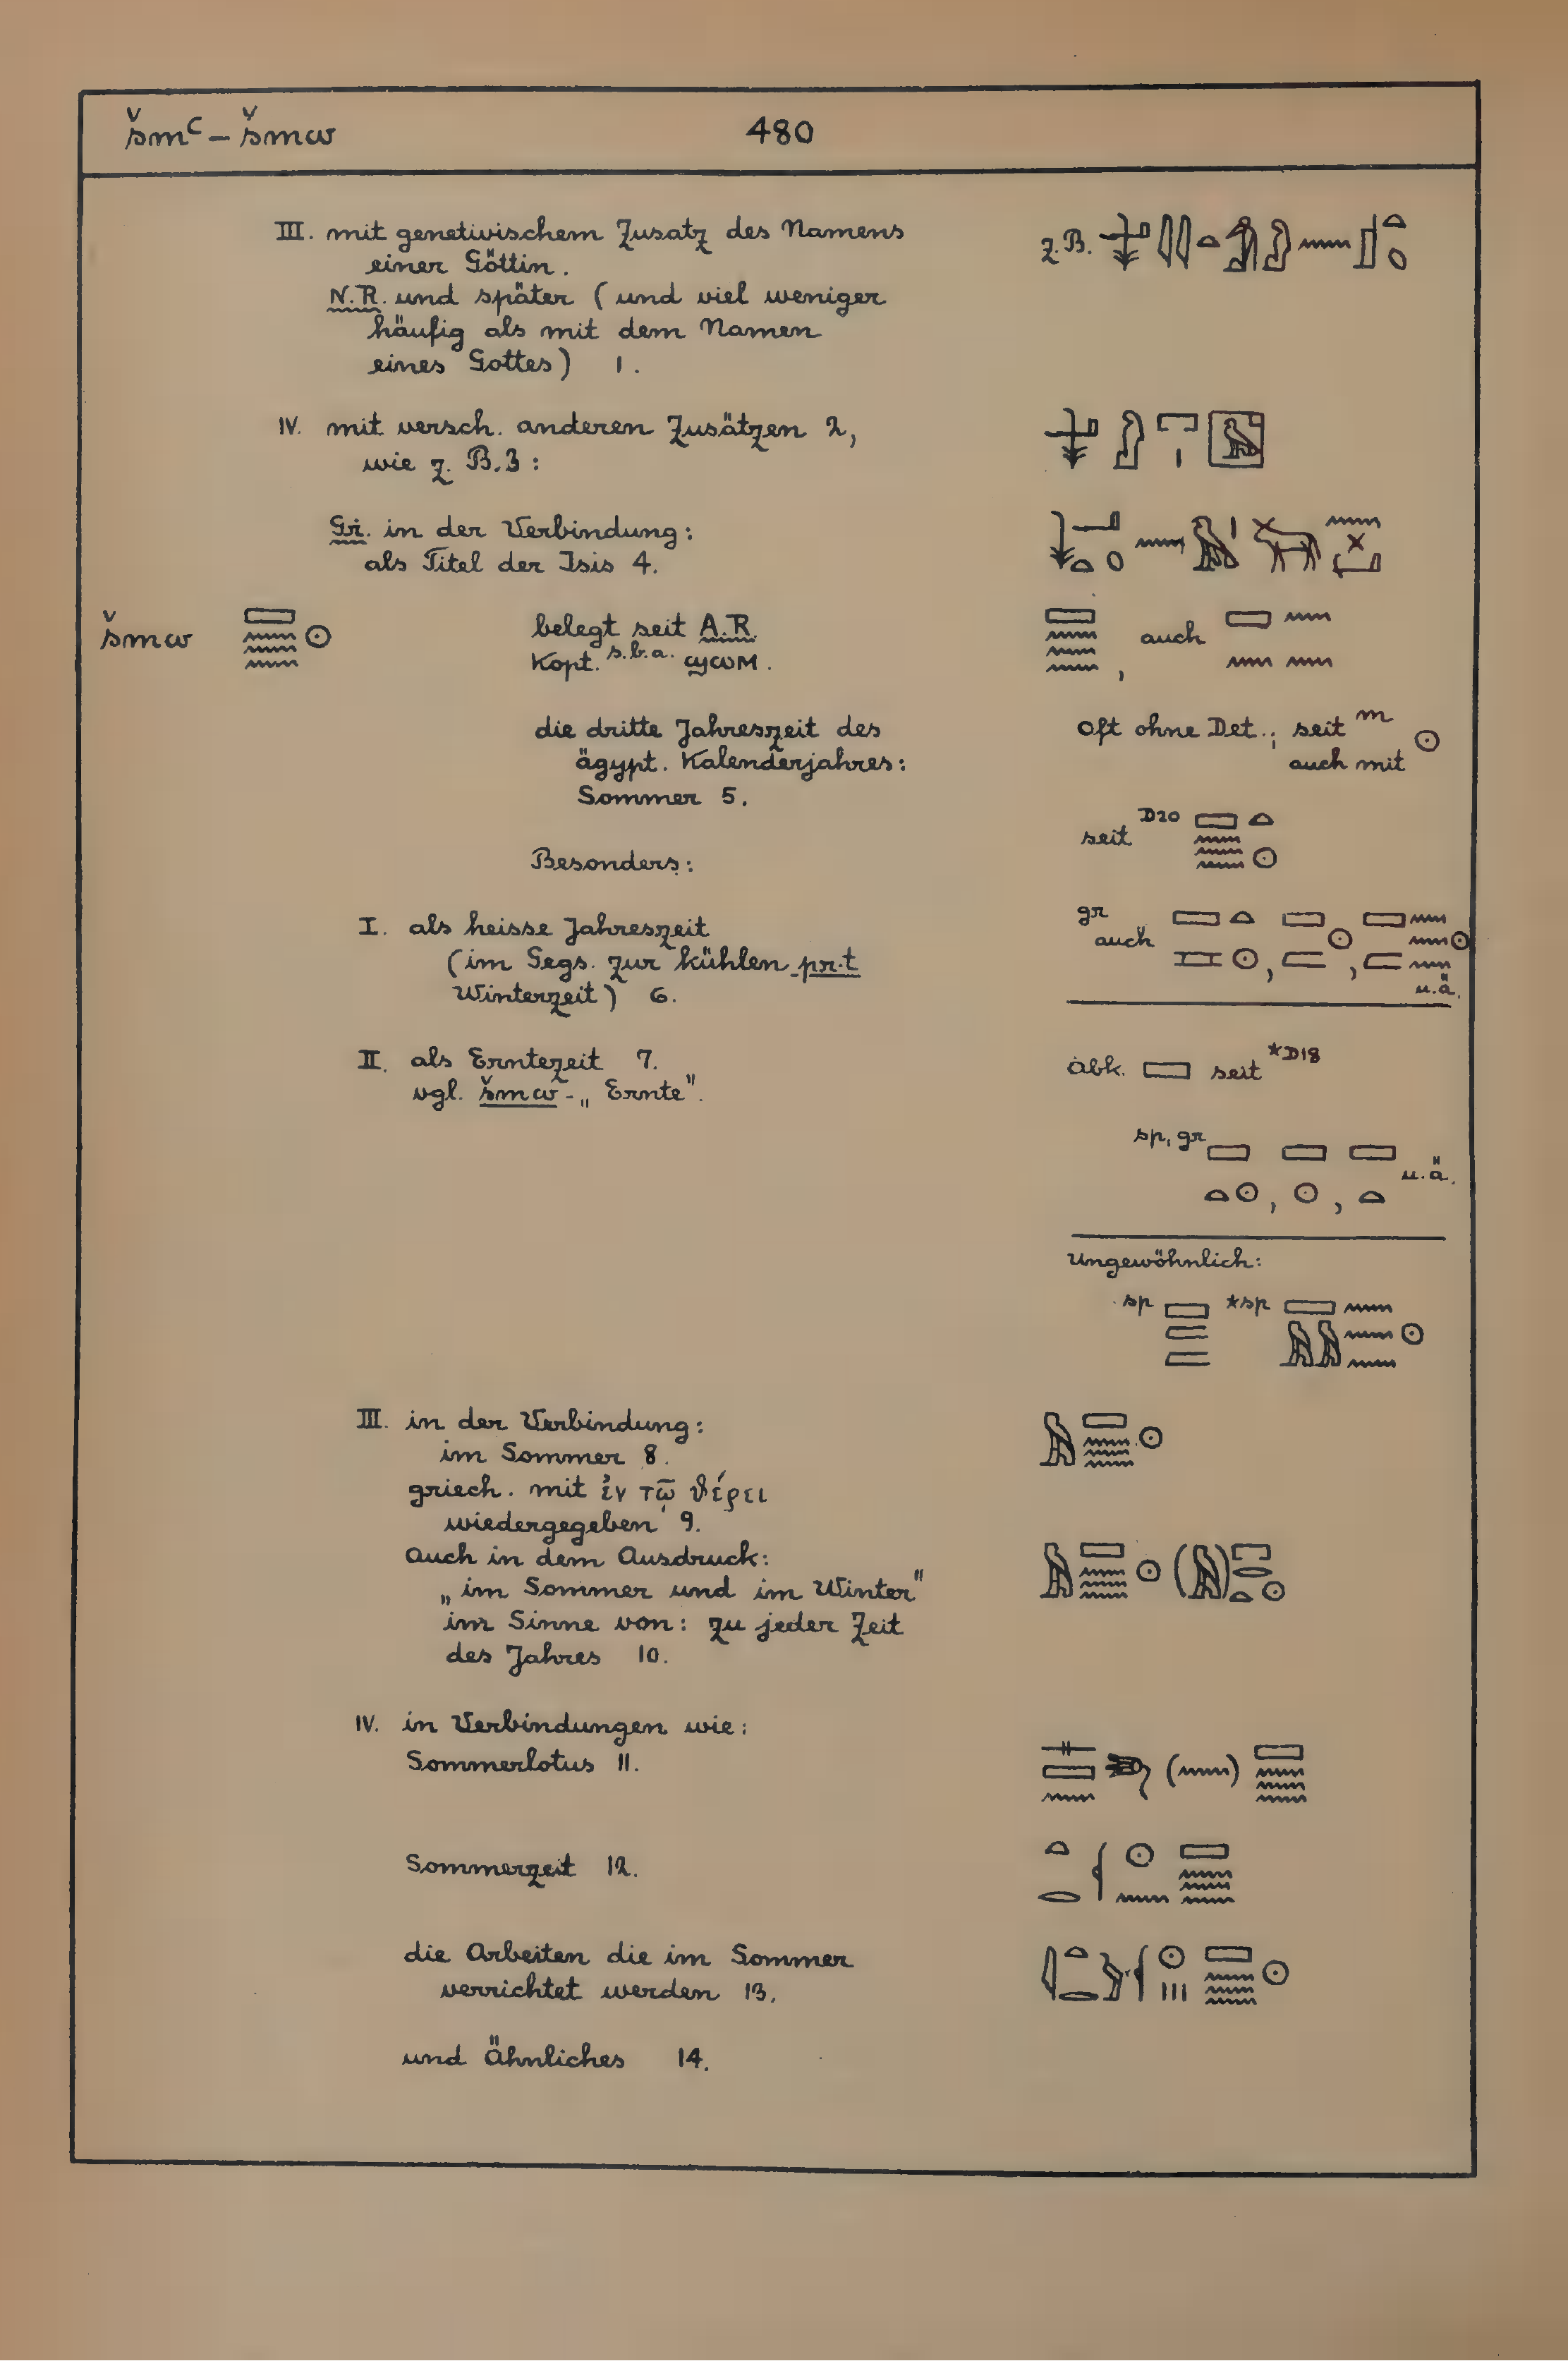 šmꜥ – šmw
480
III. mit genetivischem Zusatz des Namens
einer Göttin.
N.R. und später (und viel weniger
häufig als mit dem Namen
eines Gottes) 1.
z.B.
IV. mit versch. anderen Zusätzen 2,
wie z. B. 3:
Gr. in der Verbindung:
als Titel der Isis 4.
šmw 𓈙𓈗𓇳
belegt seit A.R.
Kopt. s.b.a. ϣⲱⲙ.
𓈙𓈗, auch 𓈙𓈖𓈖𓈖
die dritte Jahreszeit des
ägypt. Kalenderjahres:
Sommer 5.
oft ohne Det.; seit m
auch mit 𓇳
seit D20 𓈙𓏏𓈗𓇳
Besonders:
I. als heisse Jahreszeit
(im Gegs. zur kühlen pr.t
Winterzeit) 6.
gr
auch
u.ä.
II. als Erntezeit 7.
vgl. šmw - „Ernte".
abk. 𓈙 seit *D18
sp, gr
𓈙𓏏𓇳, 𓈙𓇳, 𓈙𓏏 u.ä.
Ungewöhnlich:
sp *sp
III. in der Verbindung:
im Sommer 8.
𓅓𓈙𓈗𓇳
griech. mit ἐν τῷ θέρει
wiedergegeben 9.
auch in dem Ausdruck:
„im Sommer und im Winter"
im Sinne von: zu jeder Zeit
des Jahres 10.
𓅓𓈙𓈗𓇳(𓅓)𓉐𓂋𓏏𓇳
IV. in Verbindungen wie:
Sommerlotus 11.
Sommerzeit 12.
die Arbeiten die im Sommer
verrichtet werden 13.
und Ähnliches 14.